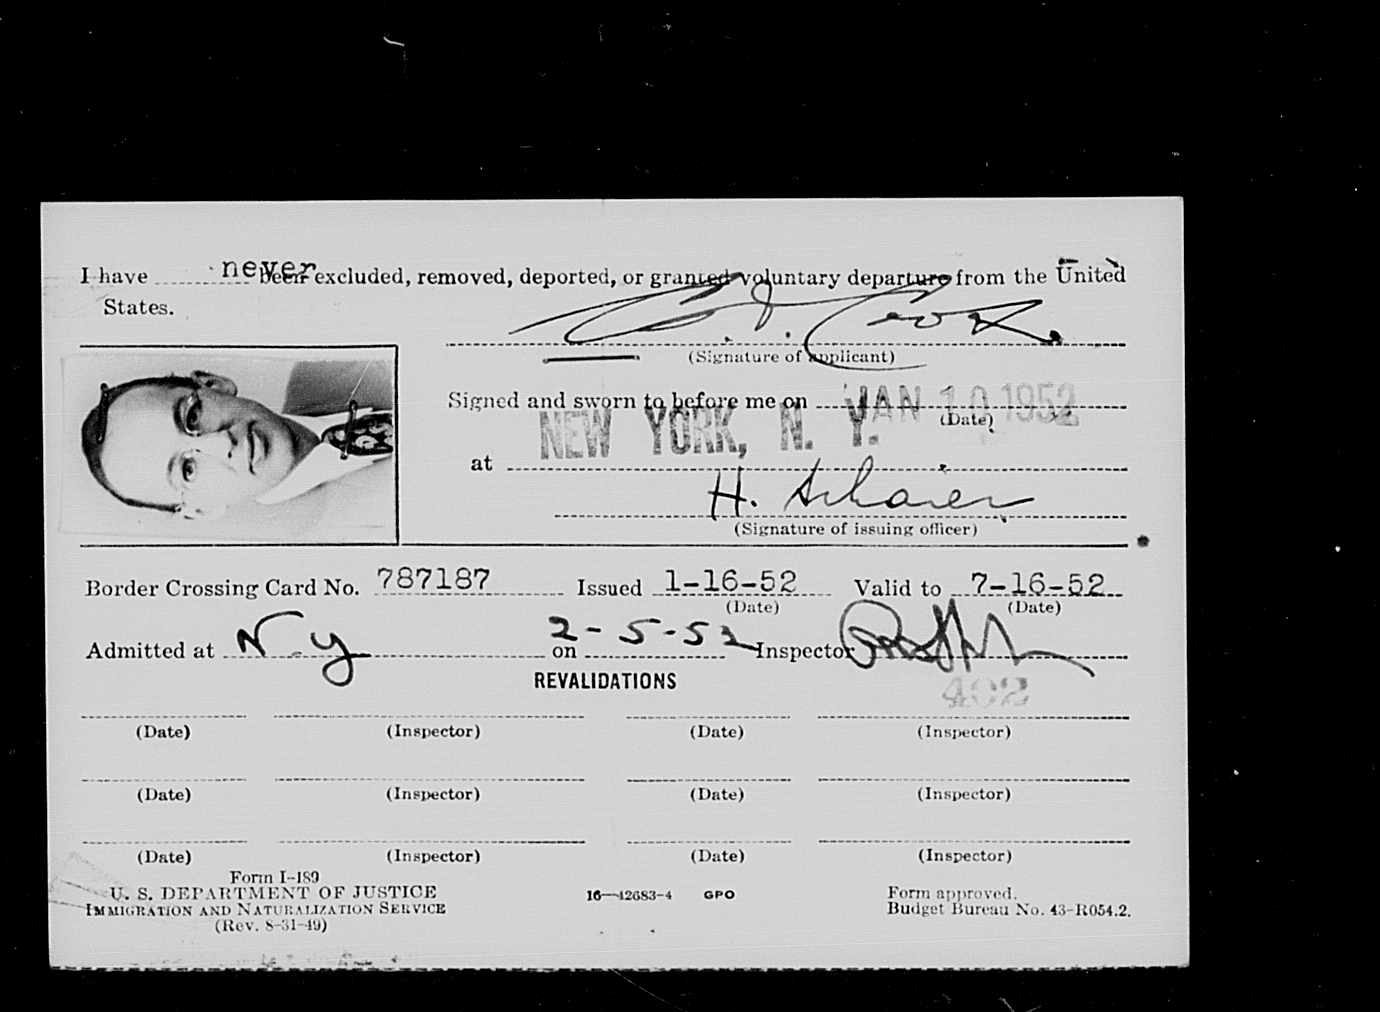 I have never been excluded, removed, deported, or granted voluntary departure from the United
States.
(Signature of applicant)
Signed and sworn to before me on JAN 10 1952
(Date)
NEW YORK, N. Y.
at
H.
(Signature of issuing officer)
Border Crossing Card No. 787187 Issued 1-16-52 Valid to 7-16-52
(Date) (Date)
Admitted at N.Y on 2-5-52 Inspector
402
REVALIDATIONS
(Date) (Inspector) (Date) (Inspector)
(Date) (Inspector) (Date) (Inspector)
(Date) (Inspector) (Date) (Inspector)
Form I-189
U. S. DEPARTMENT OF JUSTICE
IMMIGRATION AND NATURALIZATION SERVICE
(Rev. 8-31-49)
16—42683-4 GPO
Form approved.
Budget Bureau No. 43-R054.2.